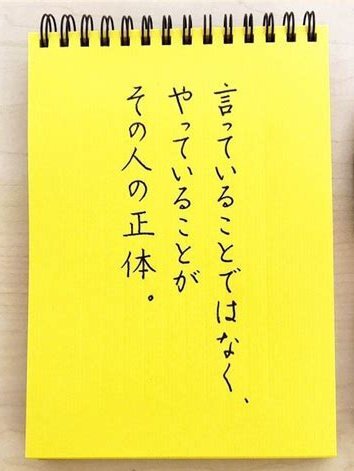 言っていることではなく、
やっていることが
その人の正体。